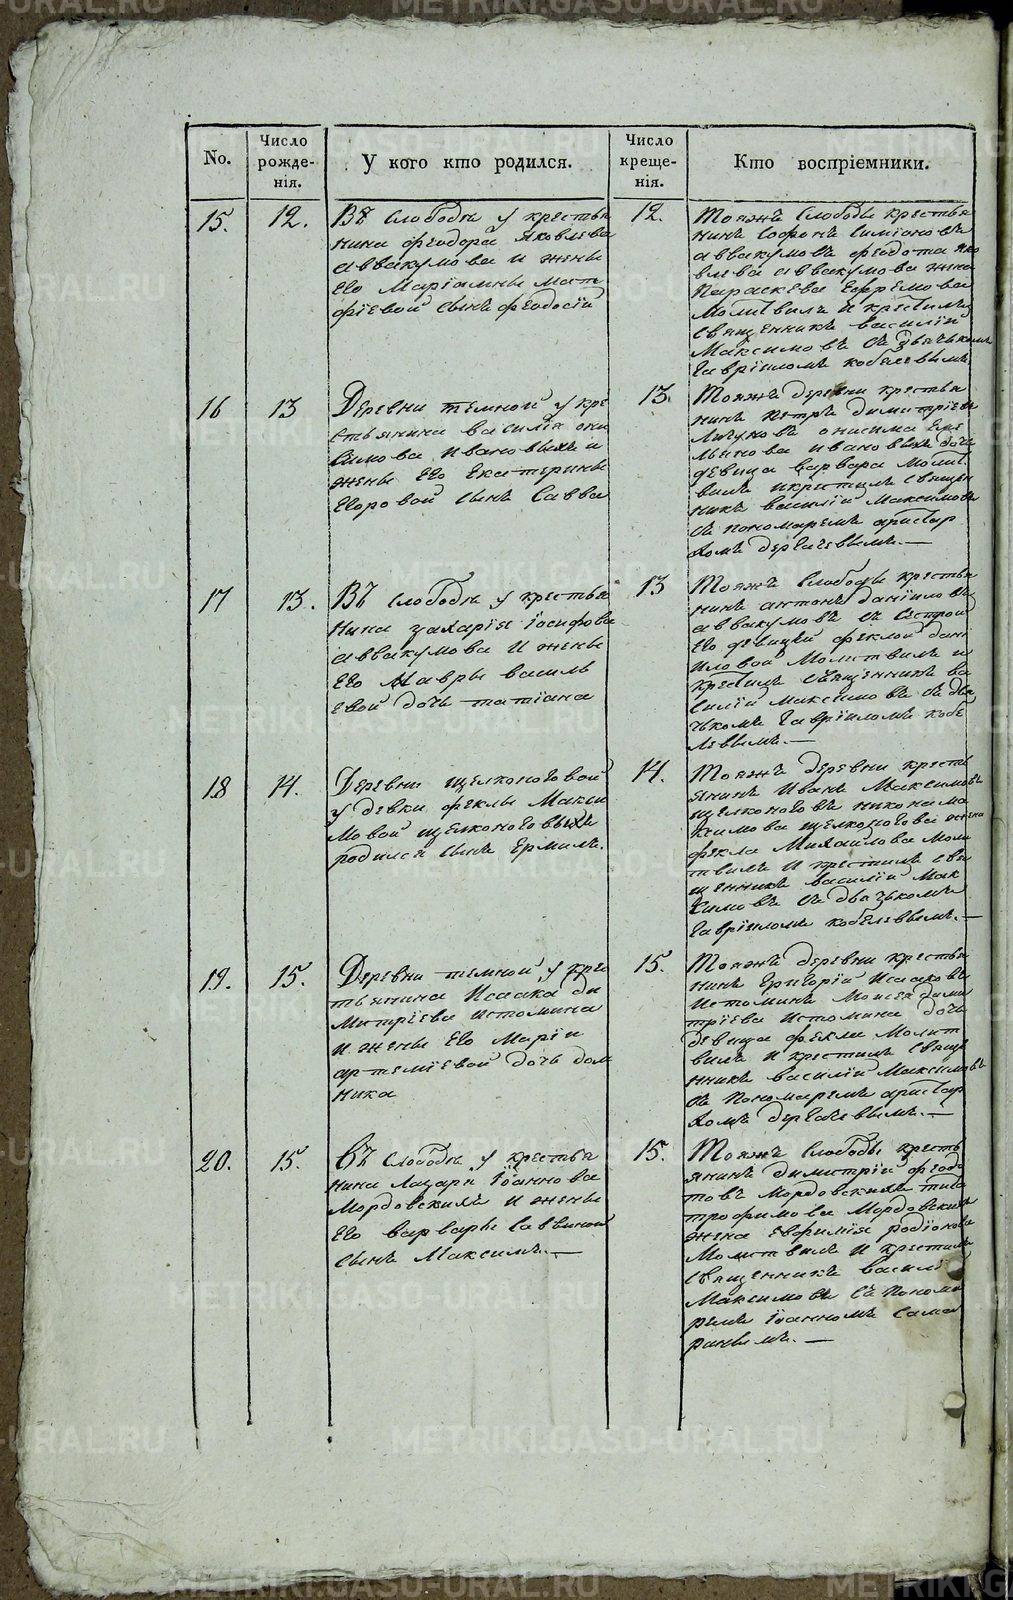 No.
Число рожде-нія.
У кого кто родился.
Число креще-нія.
Кто воспріемники.
15.
12.
Въ слободѣ у крестья
нина Феодора Яковлева
Аввакумова и жены
его Маріамны Мат
фіевой сынъ Феодосій
12.
Тояжъ слободы крестья
нинъ Софонъ Симіоновъ
Аввакумовъ Федота Яко
влева Аввакумова жена
Параскева Ефремова
молитвилъ и крестилъ
священникъ Василій
Максимовъ съ дьячькомъ
Гавріиломъ Кобелевымъ
16
13
Деревни Темной у кре
стьянина Василія Они
симова Ивановыхъ и
жены его Екатерины
Егоровой сынъ Савва
13.
Тояжъ деревни крестья
нинъ Петръ Димитріевъ
Онисима
Ивановыхъ дочь
девица Варвара молит
вилъ и крестилъ священ
никъ Василій Максимовъ
съ пономаремъ Аристар
хомъ Дергачевымъ.—
17
13.
Въ слободѣ у крестья
нина Захарія Іосифова
Аввакумова и жены
его Мавры Василь
евой дочь Татіана
13
Тояжъ слободы крестья
нинъ Антонъ Даніиловъ
Аввакумовъ съ сестрой
его девицей Феклой Дані
иловой молитвилъ и
крестилъ священникъ Ва
силій Максимовъ съ дья
чькомъ Гавріиломъ Кобе
левымъ.—
18
14.
Деревни Щелконоговой
у девки Феклы Макси
мовой Щелконоговыхъ
родился сынъ Ермилъ.
14.
Тояжъ деревни кресть
янинъ Иванъ Максимовъ
Щелконоговъ Никона Ма
ксимова Щелконогова жена
Фекла Михаилова моли
твилъ и крестилъ свя
щенникъ Василій Мак
симовъ съ дьячькомъ
Гавріиломъ Кобелевымъ.—
19.
15.
Деревни Темной у крес
тьянина Исаака Ди
митріева Истомина
и жены его Маріи
Артеміевой дочь Дом
ника
15.
Тояжъ деревни крестья
нинъ Григорій Исааковъ
Истоминъ Моисея Дими
тріева Истомина дочь
девица Фекла молит
вилъ и крестилъ свяще
нникъ Василій Максимовъ
съ пономаремъ Аристар
хомъ Дергачевымъ.—
20.
15.
Въ слободѣ у крестья
нина Лазаря Іоаннова
Мордовскихъ и жены
его Варвары Саввиной
сынъ Максимъ.—
15.
Тояжъ слободы кресть
янинъ Димитрій Федо
товъ Мордовскихъ
Трофимова Мордовскихъ
жена Евфимія Родіонова
молитвилъ и крестилъ
священникъ Василій
Максимовъ съ понома
ремъ Іоанномъ Сама
ринымъ.—
METRIKI.GASO-URAL.RU